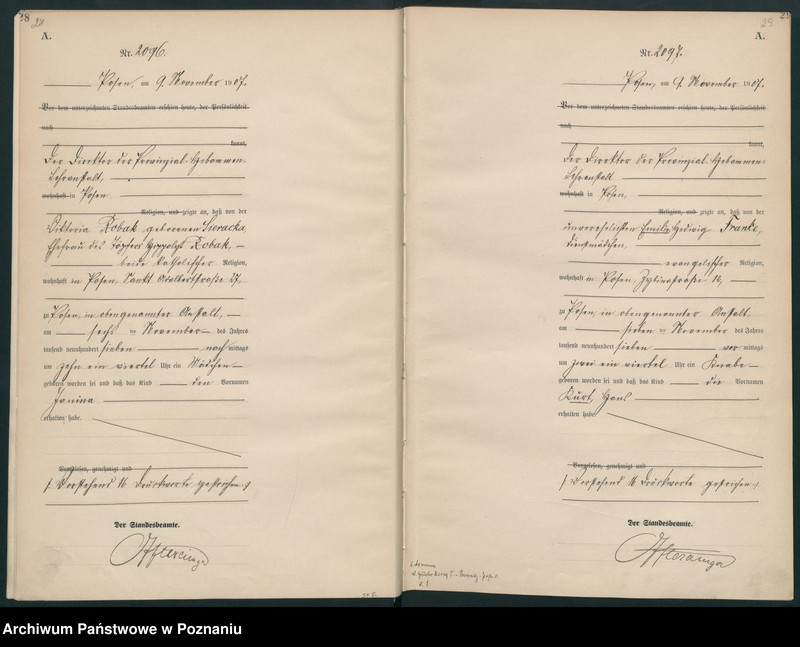 28
28
A.
Nr. 2096.
Posen, am 9. November 1907.
Vor dem unterzeichneten Standesbeamten erschien heute, der Persönlichkeit
nach
kannt,
Der Direktor der Provinzial-Hebammen-
Lehranstalt,
wohnhaft in Posen
Religion, und zeigte an, daß von der
Viktoria Kobak geborenen Sieracka,
Ehefrau des Töpfers Hyppolyt Kobak,
beide katholischer Religion,
wohnhaft in Posen, Sankt Adalbertstraße 27,
zu Posen, in obengenannter Anstalt,
am sechs ten November des Jahres
tausend neunhundert sieben nach mittags
um zehn ein viertel Uhr ein Mädchen
geboren worden sei und daß das Kind den Vornamen
Janina
erhalten habe.
Vorgelesen, genehmigt und
/: Vorstehend 16 Druckworte gestrichen. :/
Der Standesbeamte.
29
29
A.
Nr. 2097.
Posen, am 9. November 1907.
Vor dem unterzeichneten Standesbeamten erschien heute, der Persönlichkeit
nach
kannt,
Der Direktor der Provinzial-Hebammen-
Lehranstalt
wohnhaft in Posen,
Religion, und zeigte an, daß von der
unverehelichten Emilie Hedwig Franke,
Dienstmädchen,
evangelischer Religion,
wohnhaft in Posen,
zu Posen, in obengenannter Anstalt,
am sieben ten November des Jahres
tausend neunhundert sieben vor mittags
um zwei ein viertel Uhr ein Knabe
geboren worden sei und daß das Kind die Vornamen
Kurt Hans
erhalten habe.
Vorgelesen, genehmigt und
/: Vorstehend 16 Druckworte gestrichen. :/
Der Standesbeamte.
Archiwum Państwowe w Poznaniu